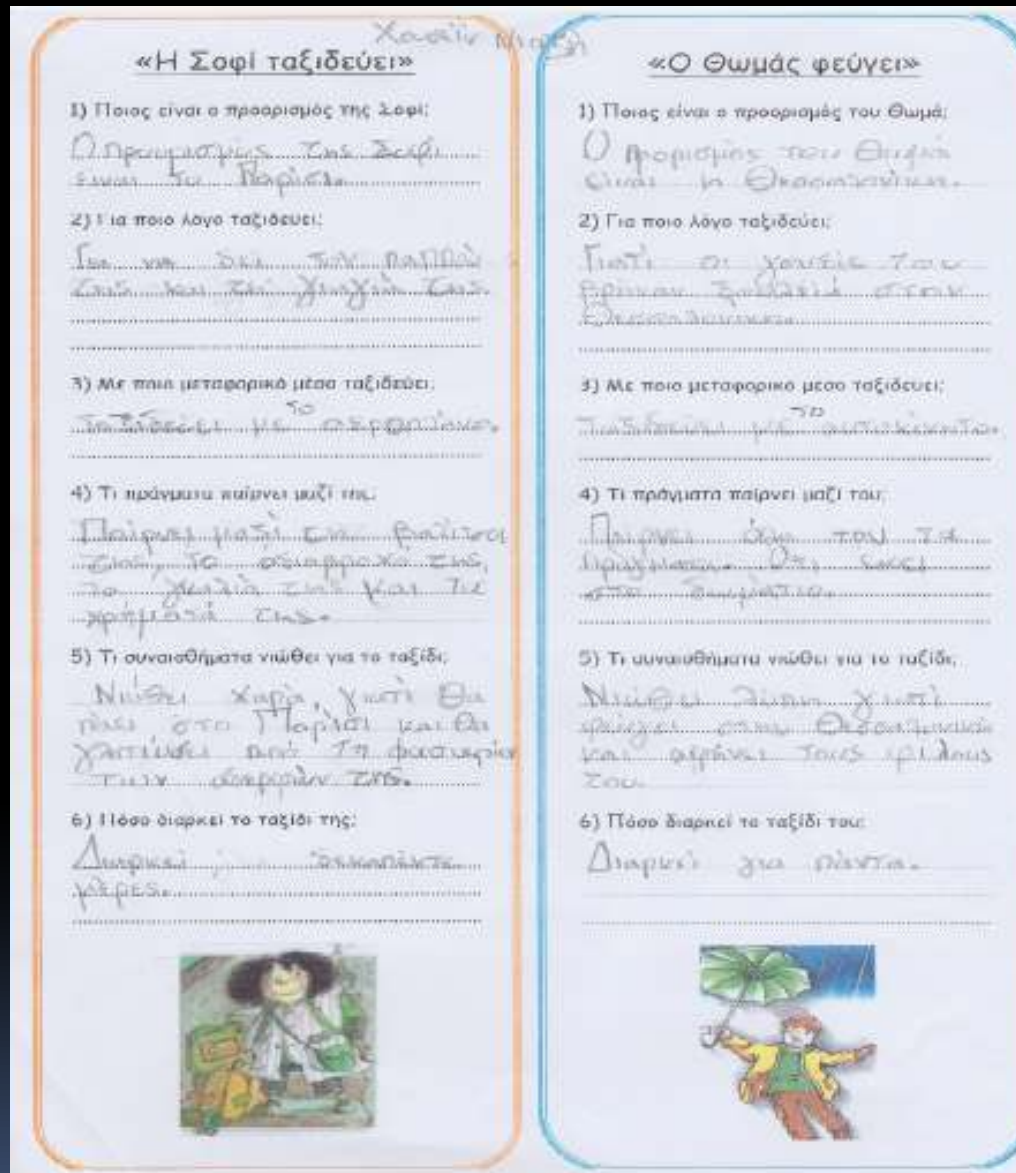 Χασάν
«Η Σοφί ταξιδεύει»
1) Ποιος είναι ο προορισμός της Σοφί;
Ο προορισμός της Σοφί
είναι το Παρίσι.
2) Για ποιο λόγο ταξιδεύει;
Για να δει τον παππού
της και τη γιαγιά της.
3) Με ποιο μεταφορικό μέσο ταξιδεύει;
το
Ταξιδεύει με αεροπλάνο.
4) Τι πράγματα παίρνει μαζί της;
Παίρνει μαζί της βαλίτσα
της, το αδιάβροχό της,
τα γυαλιά της και τα
χρήματά της.
5) Τι συναισθήματα νιώθει για το ταξίδι;
Νιώθει χαρά, γιατί θα
πάει στο Παρίσι και θα
γλιτώσει από τη φασαρία
των αδερφών της.
6) Πόσο διαρκεί το ταξίδι της;
Διαρκεί δεκαπέντε
μέρες.
«Ο Θωμάς φεύγει»
1) Ποιος είναι ο προορισμός του Θωμά;
Ο προρισμός του Θωμά
είναι η Θεσσαλονίκη.
2) Για ποιο λόγο ταξιδεύει;
Γιατί οι γονείς του
βρήκαν δουλειά στην
Θεσσαλονίκη.
3) Με ποιο μεταφορικό μέσο ταξιδεύει;
το
Ταξιδεύει με αυτοκίνητο.
4) Τι πράγματα παίρνει μαζί του;
Παίρνει όλα του τα
πράγματα. Ότι έχει
στο δωμάτιο.
5) Τι συναισθήματα νιώθει για το ταξίδι;
Νιώθει λύπη γιατί
φεύγει στην Θεσσαλονίκη
και αφήνει τους φίλους
του.
6) Πόσο διαρκεί το ταξίδι του;
Διαρκεί για πάντα.